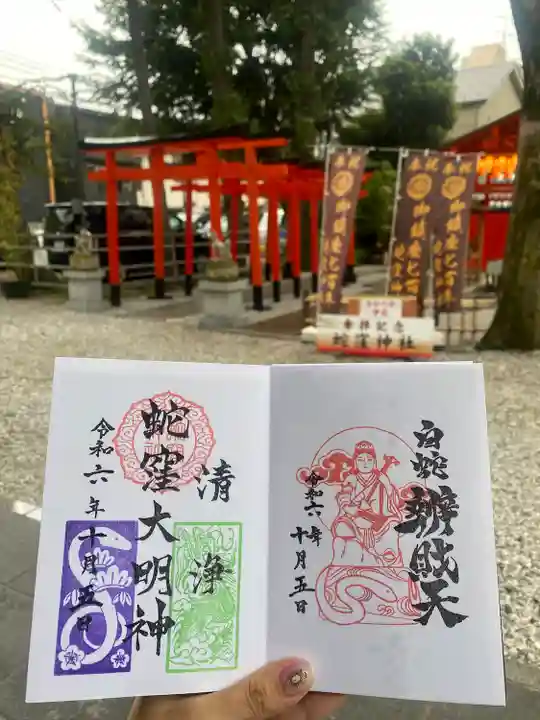 蛇窪大明神
清浄
令和六年十月五日
白蛇辨財天
令和六年十月五日
参拝記念
蛇窪神社